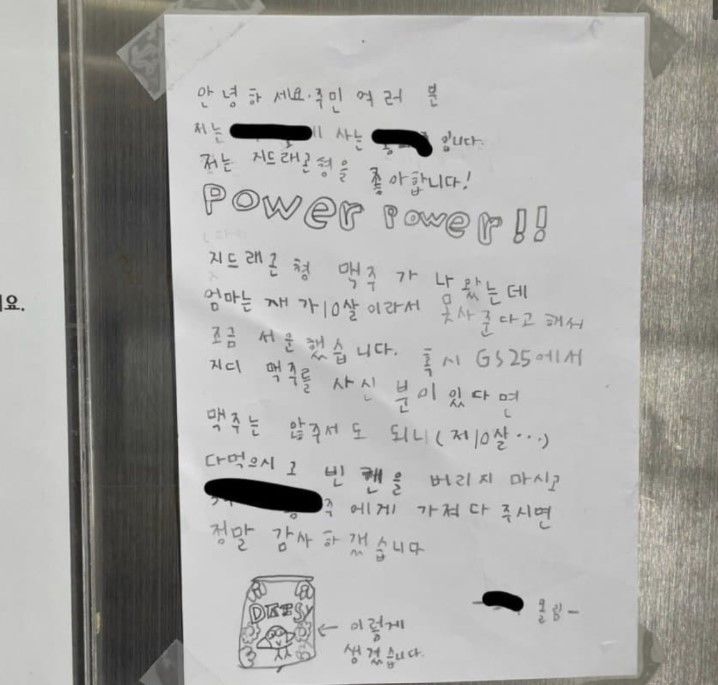 안녕하세요. 주민 여러분
저는 사는 입니다.
저는 지드래곤형을 좋아합니다!
POWER POWER!!
지드래곤 형 맥주가 나왔는데
엄마는 제가 10살이라서 못사준다고 해서
조금 서운했습니다. 혹시 GS25에서
지디 맥주를 사신 분이 있다면
맥주는 않주셔도 되니(저10살...)
다먹으시고 빈 캔을 버리지 마시고
에게 가져다 주시면
정말 감사하겠습니다
- 올림-
←이렇게
생겼습니다.
요.